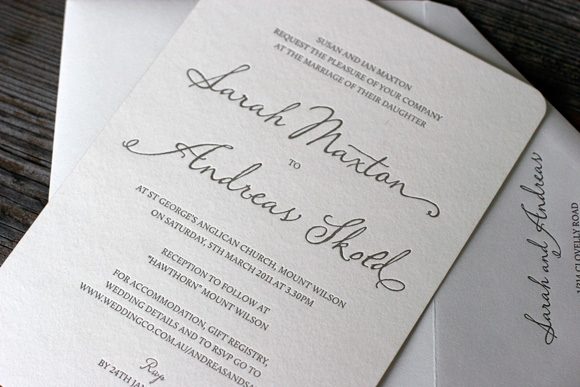 SUSAN AND IAN MAXTON
REQUEST THE PLEASURE OF YOUR COMPANY
AT THE MARRIAGE OF THEIR DAUGHTER
Sarah Maxton
TO
Andreas Skold
AT ST GEORGE'S ANGLICAN CHURCH, MOUNT WILSON
ON SATURDAY, 5TH MARCH 2011 AT 3.30PM
RECEPTION TO FOLLOW AT
"HAWTHORN" MOUNT WILSON
FOR ACCOMMODATION, GIFT REGISTRY,
WEDDING DETAILS AND TO RSVP GO TO
WWW.WEDDINGCO.COM.AU/ANDREASANDSA
Rsvp
BY 24TH JAN
Sarah and Andreas
CLOVELLY ROAD